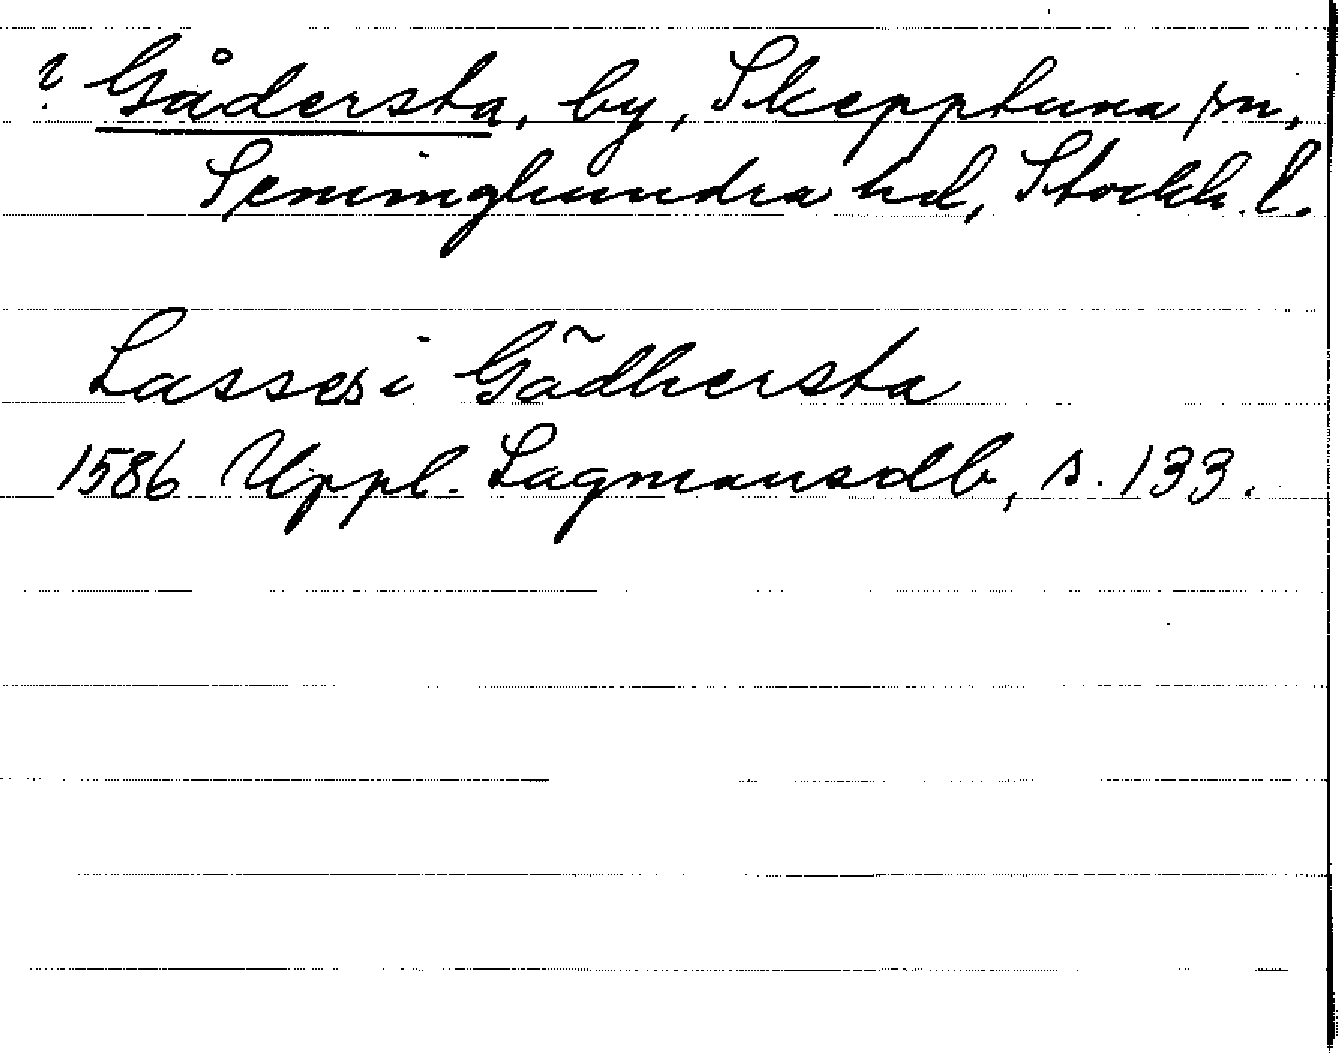 ? Gådersta, by, Skepptuna sn,
Seminghundra hd, Stockh. l.
Lasses i Gãdhersta
1586 Uppl. Lagmansdb, s. 133.